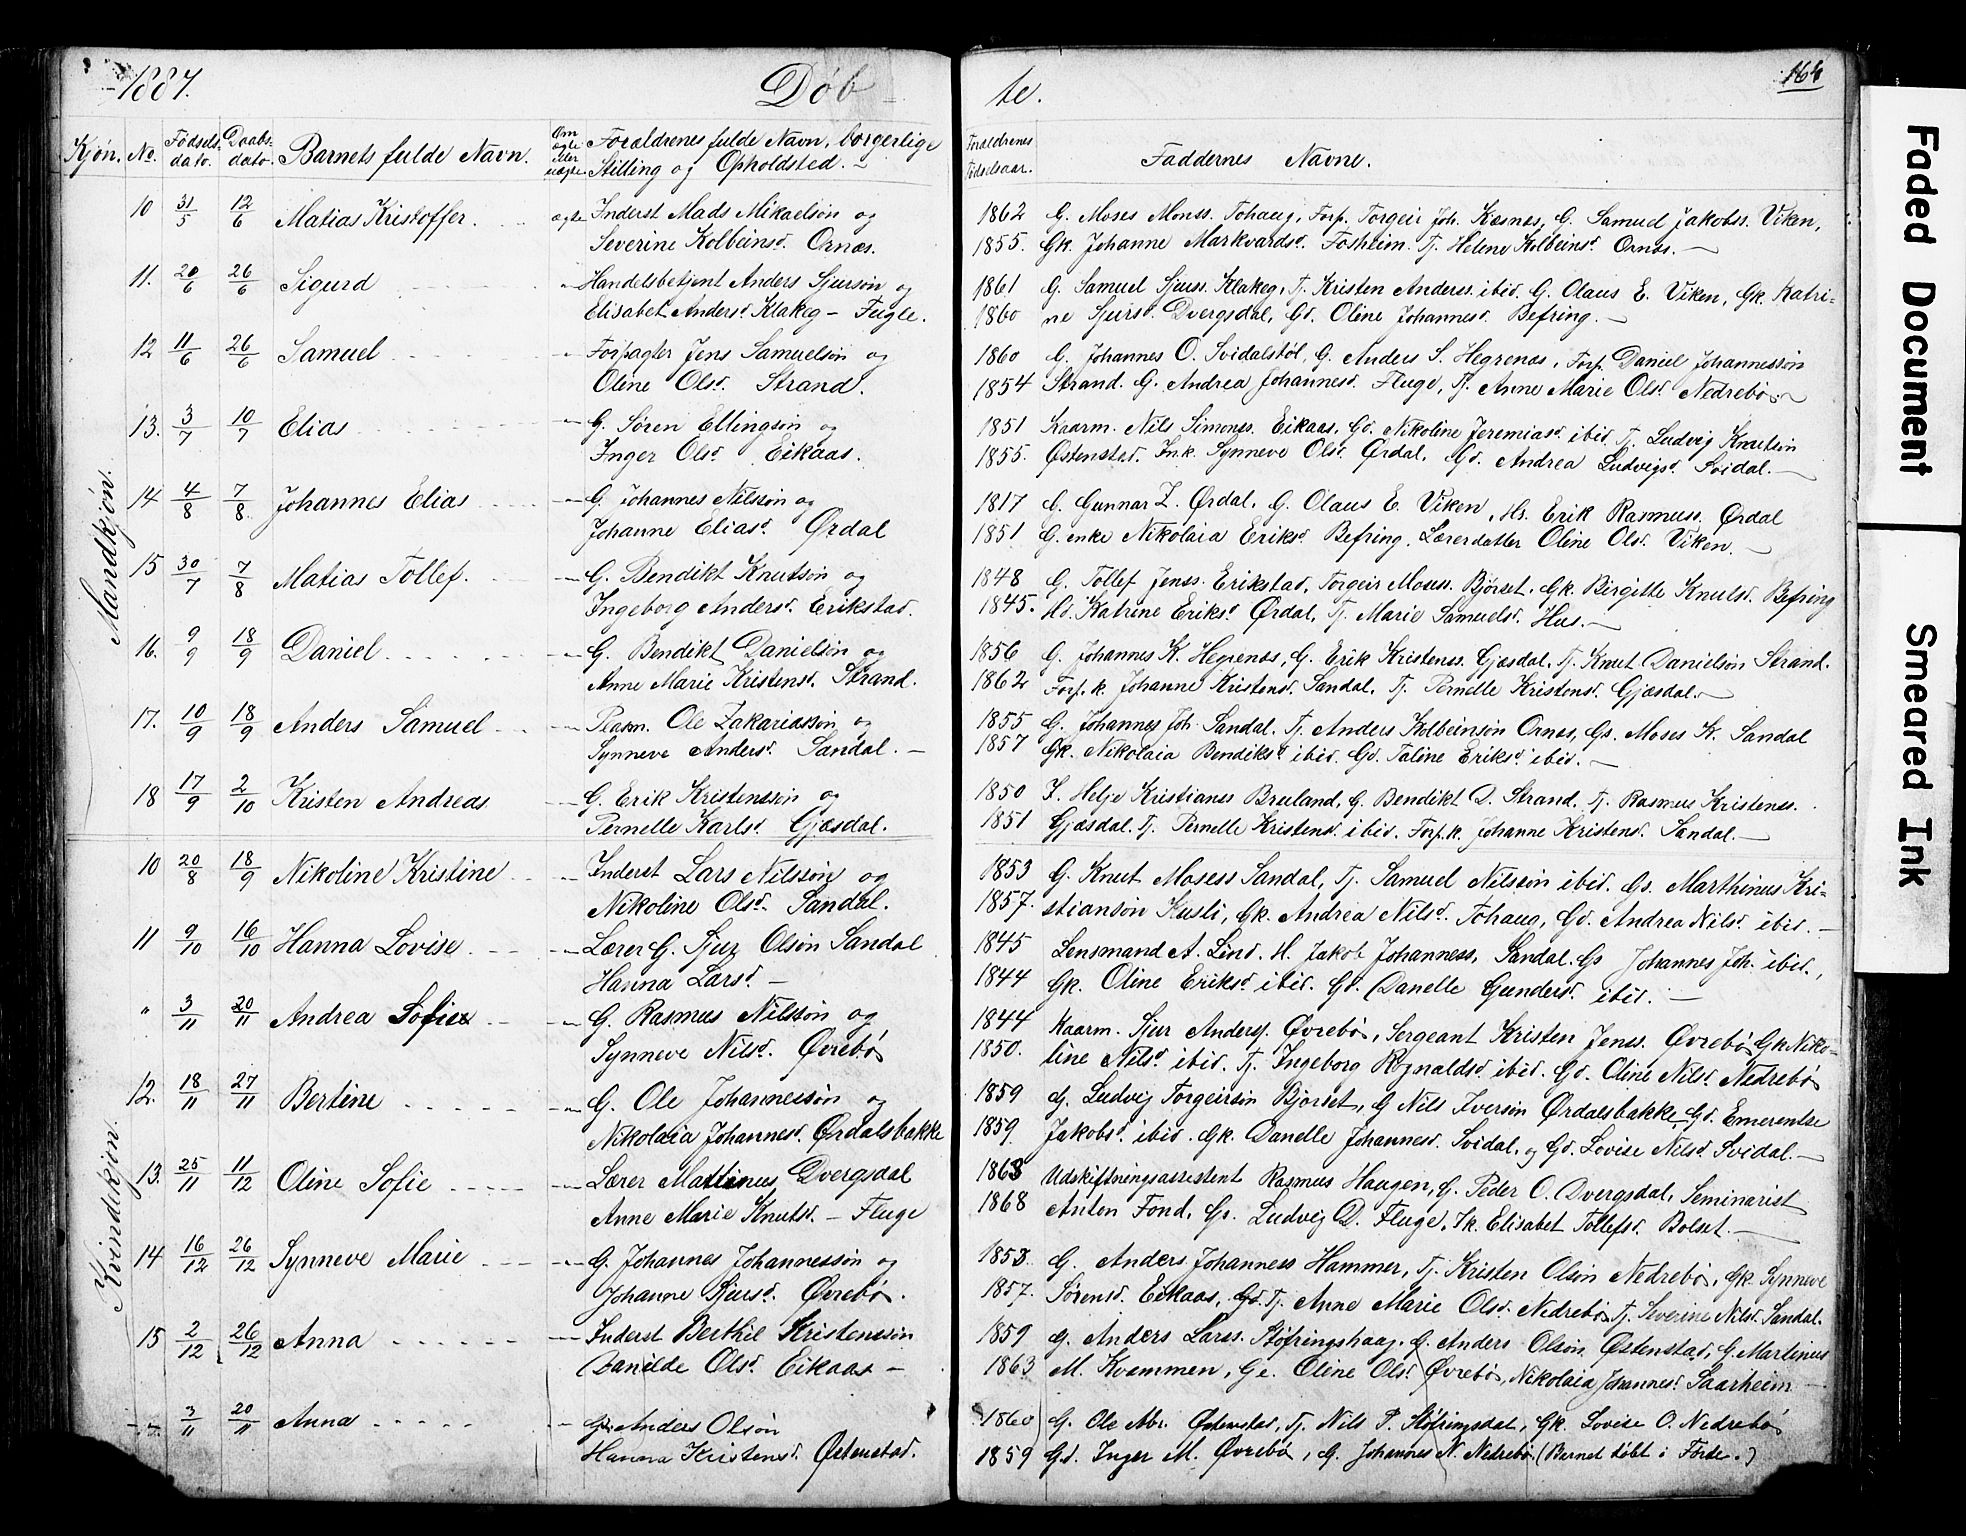 1887. Døb te. 164
Kjøn. No. Fødsels dato. Daabs dato. Barnets fulde Navn. Om ægte eller uægte Forældrenes fulde Navn, borgerlige Stilling og Opholdsted. Forældrenes Fødselsaar. Faddernes Navne.
Mandkjøn.
10 31/5 12/6 Matias Kristoffer. ægte Inderst Mads Mikaelsøn og 1862 G. Moses Monss. Tohaug, Forp. Torgeir Joh. Kæsnes, G. Samuel Jakobss. Viken,
Severine Kolbeinsd. Ornæs. 1855. Gk. Johanne Markvardsd. Fosheim. Tj. Helene Kolbeinsd. Ornæs. —
11. 20/6 26/6 Sigurd Handelsbetjent Anders Sjursøn og 1861 G. Samuel Sjurss. Klakeg, Tj. Kristen Anderss. ibid. G. Olaus E. Viken, Gk. Katri-
Elisabet Andersd. Klakeg – Fugle. 1860 ne Sjursd. Dvergsdal, Gd. Oline Johannesd. Befring. —
12 11/6 26/6 Samuel Forpagter Jens Samuelsøn og 1860 G. Johannes O. Svidalstøl, G. Anders S. Hegrenæs, Forp. Daniel Johannessøn
Oline Olsd. Strand. 1854 Strand. G. Andrea Johannesd. Fluge, Tj. Anne Marie Olsd. Nedrebø. —
13. 3/7 10/7 Elias G. Søren Ellingsøn og 1851 Kaarm. Nils Simonss. Eikaas, Gd. Nikoline Jeremiasd. ibid. Tj. Ludvig Knutsøn
Inger Olsd. Eikaas. 1855. Østenstad. Ink. Synneve Olsd. Ørdal, Gd. Andrea Ludvigsd. Svidal. —
14 4/8 7/8 Johannes Elias G. Johannes Nilssøn og 1817 G. Gunnar Z. Ørdal. G. Olaus E. Viken, Hs. Erik Rasmuss. Ørdal
Johanne Eliasd. Ørdal 1851 G. enke Nikolaia Eriksd. Befring. Lærerdatter Oline Olsd. Viken. —
15 30/7 7/8 Matias Tollef. G. Bendikt Knutsøn og 1848 G. Tollef Jenss. Erikstad, Torgeir Moses. Bjørset, Gk. Birgitte Knutsd. Befring
Ingeborg Andersd. Erikstad. 1845. Hd. Katrine Eriksd. Ørdal, Tj. Marie Samuelsd. Hus. —
16. 9/9 18/9 Daniel G. Bendikt Danielsøn og 1856 G. Johannes K. Hegrenæs, G. Erik Kristenss. Gjæsdal, Tj. Knut Danielsøn Strand.
Anne Marie Kristensd. Strand. 1862 Forp. k. Johanne Kristensd. Sandal, Tj. Pernelle Kristensd. Gjæsdal. —
17. 10/9 18/9 Anders Samuel Plasm. Ole Zakariassøn og 1855 G. Johannes Joh. Sandal. Tj. Anders Kolbeinsøn Ornæs, Gs. Moses K. Sandal
Synneve Andersd. Sandal. — 1857 Gk. Nikolaia Bendiksd. ibid. Gd. Taline Eriksd. ibid. —
18 17/9 2/10 Kristen Andreas G. Erik Kristenssøn og 1850 I. Helje Kristianss Breiland, G. Bendikt D. Strand. Tj. Rasmus Kristenss.
Pernelle Karlsd. Gjæsdal. 1851 Gjæsdal. Tj. Pernelle Kristensd. ibid. Forp. k. Johanne Kristensd. Sandal. —
Kvindekjøn.
10 20/8 18/9 Nikoline Kristine Inderst Lars Nilssøn og 1853 G. Knut Mosess Sandal, Tj. Samuel Nilssøn ibid. Gs. Marthinus Kri-
Nikoline Olsd. Sandal. 1857. stiansøn Kusli, Gk. Andrea Nilsd. Tohaug, Gd. Andrea Nilsd. ibid. —
11 9/10 16/10 Hanna Lovise. Lærer G. Sjur Olsøn Sandal 1845 Lensmand A. Lind. H. Jakob Johanness. Sandal. Gs Johannes Joh. ibid.,
Hanna Larsd. — 1844 Gk. Oline Eriksd. ibid. Gd. Danelle Gundersd. ibid. —
" 3/11 20/11 Andrea Sofie G. Rasmus Nilssøn og 1844 Kaarm. Sjur Anderss. Øvrebø, Sergeant Kristen Jenss. Øvrebø, Gk. Niko-
Synneve Nilsd. Øvrebø 1850. line Nilsd. ibid. Tj. Ingeborg Rognaldsd. ibid. Gd. Oline Nilsd. Nedrebø
12. 18/11 27/11 Bertine G. Ole Johannessøn og 1859 G. Ludvig Torgeirsøn Bjørset, G Nils Iversøn Ørdalsbakke, Gd. Emerentse
Nikolaia Johannesd. Ørdalsbakke 1859. Jakobsd. ibid. Gk. Danelle Johannesd. Svidal, og Gd. Lovise Nilsd. Svidal. —
13. 25/11 11/12 Oline Sofie Lærer Matinus Dvergsdal 1863 Udskiftningsassistent Rasmus Haugen, G. Peder O. Dvergsdal, Seminarist
Anne Marie Knutsd. – Fluge 1868 Anton Fond, Gs. Ludvig D. Fluge, Ik. Elisabet Tollefsd. Bolset. —
14 16/12 26/12 Synneve Marie G. Johannes Johannessøn og 1853 G. Anders Johanness Hammer, Tj. Kristen Olsøn Nedrebø, Gk. Synneve
Johanne Sjursd. Øvrebø. 1857. Sørensd. Eikaas, Tj. Anne Marie Olsd. Nedrebø, Tj. Severine Nilsd. Sandal.
15 2/12 26/12 Anna Inderst Berthil Kristenssøn 1859 G. Anders Larss. Støfringshaag, G. Anders Olsøn Østenstad, G. Martinus
Danilde Olsd. Eikaas — 1863 M. Kvammen, Ge. Oline Olsd. Øvrebø, Nikolaia Johannesd. Saarheim
3/11 20/11 Anna G. Anders Olsøn 1860 G. Ole Mi. Østenstad, Tj. Nils P. Støfringsdal, Gk. Lovise O. Nedrebø
Hanna Kristensd. Østenstad. 1859 Gd. Inger M. Øvrebø, G. Johannes N. Nedrebø. (Barnet døbt i Førde.)
Faded Document
Smeared Ink